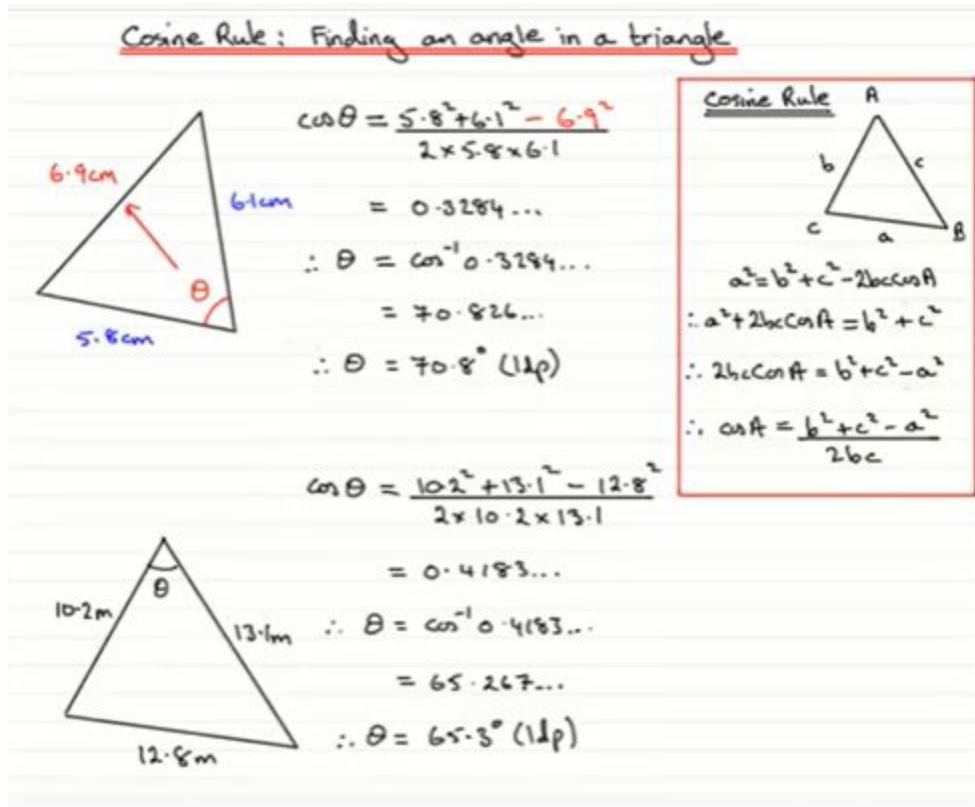 Cosine Rule: Finding an angle in a triangle
6.9cm
6.1cm
θ
5.8cm
cosθ = 5.8²+6.1² - 6.9²
2×5.8×6.1
= 0.3284...
∴ θ = cos⁻¹0.3284...
= 70.826...
∴ θ = 70.8° (1dp)
Cosine Rule
A
b
c
C
a
B
a²=b²+c²-2bcCosA
∴ a²+2bcCosA = b²+c²
∴ 2bcCosA = b²+c²-a²
∴ cosA = b²+c²-a²
2bc
θ
10.2m
13.1m
12.8m
cosθ = 10.2²+13.1² - 12.8²
2×10.2×13.1
= 0.4183...
∴ θ = cos⁻¹0.4183...
= 65.267...
∴ θ = 65.3° (1dp)